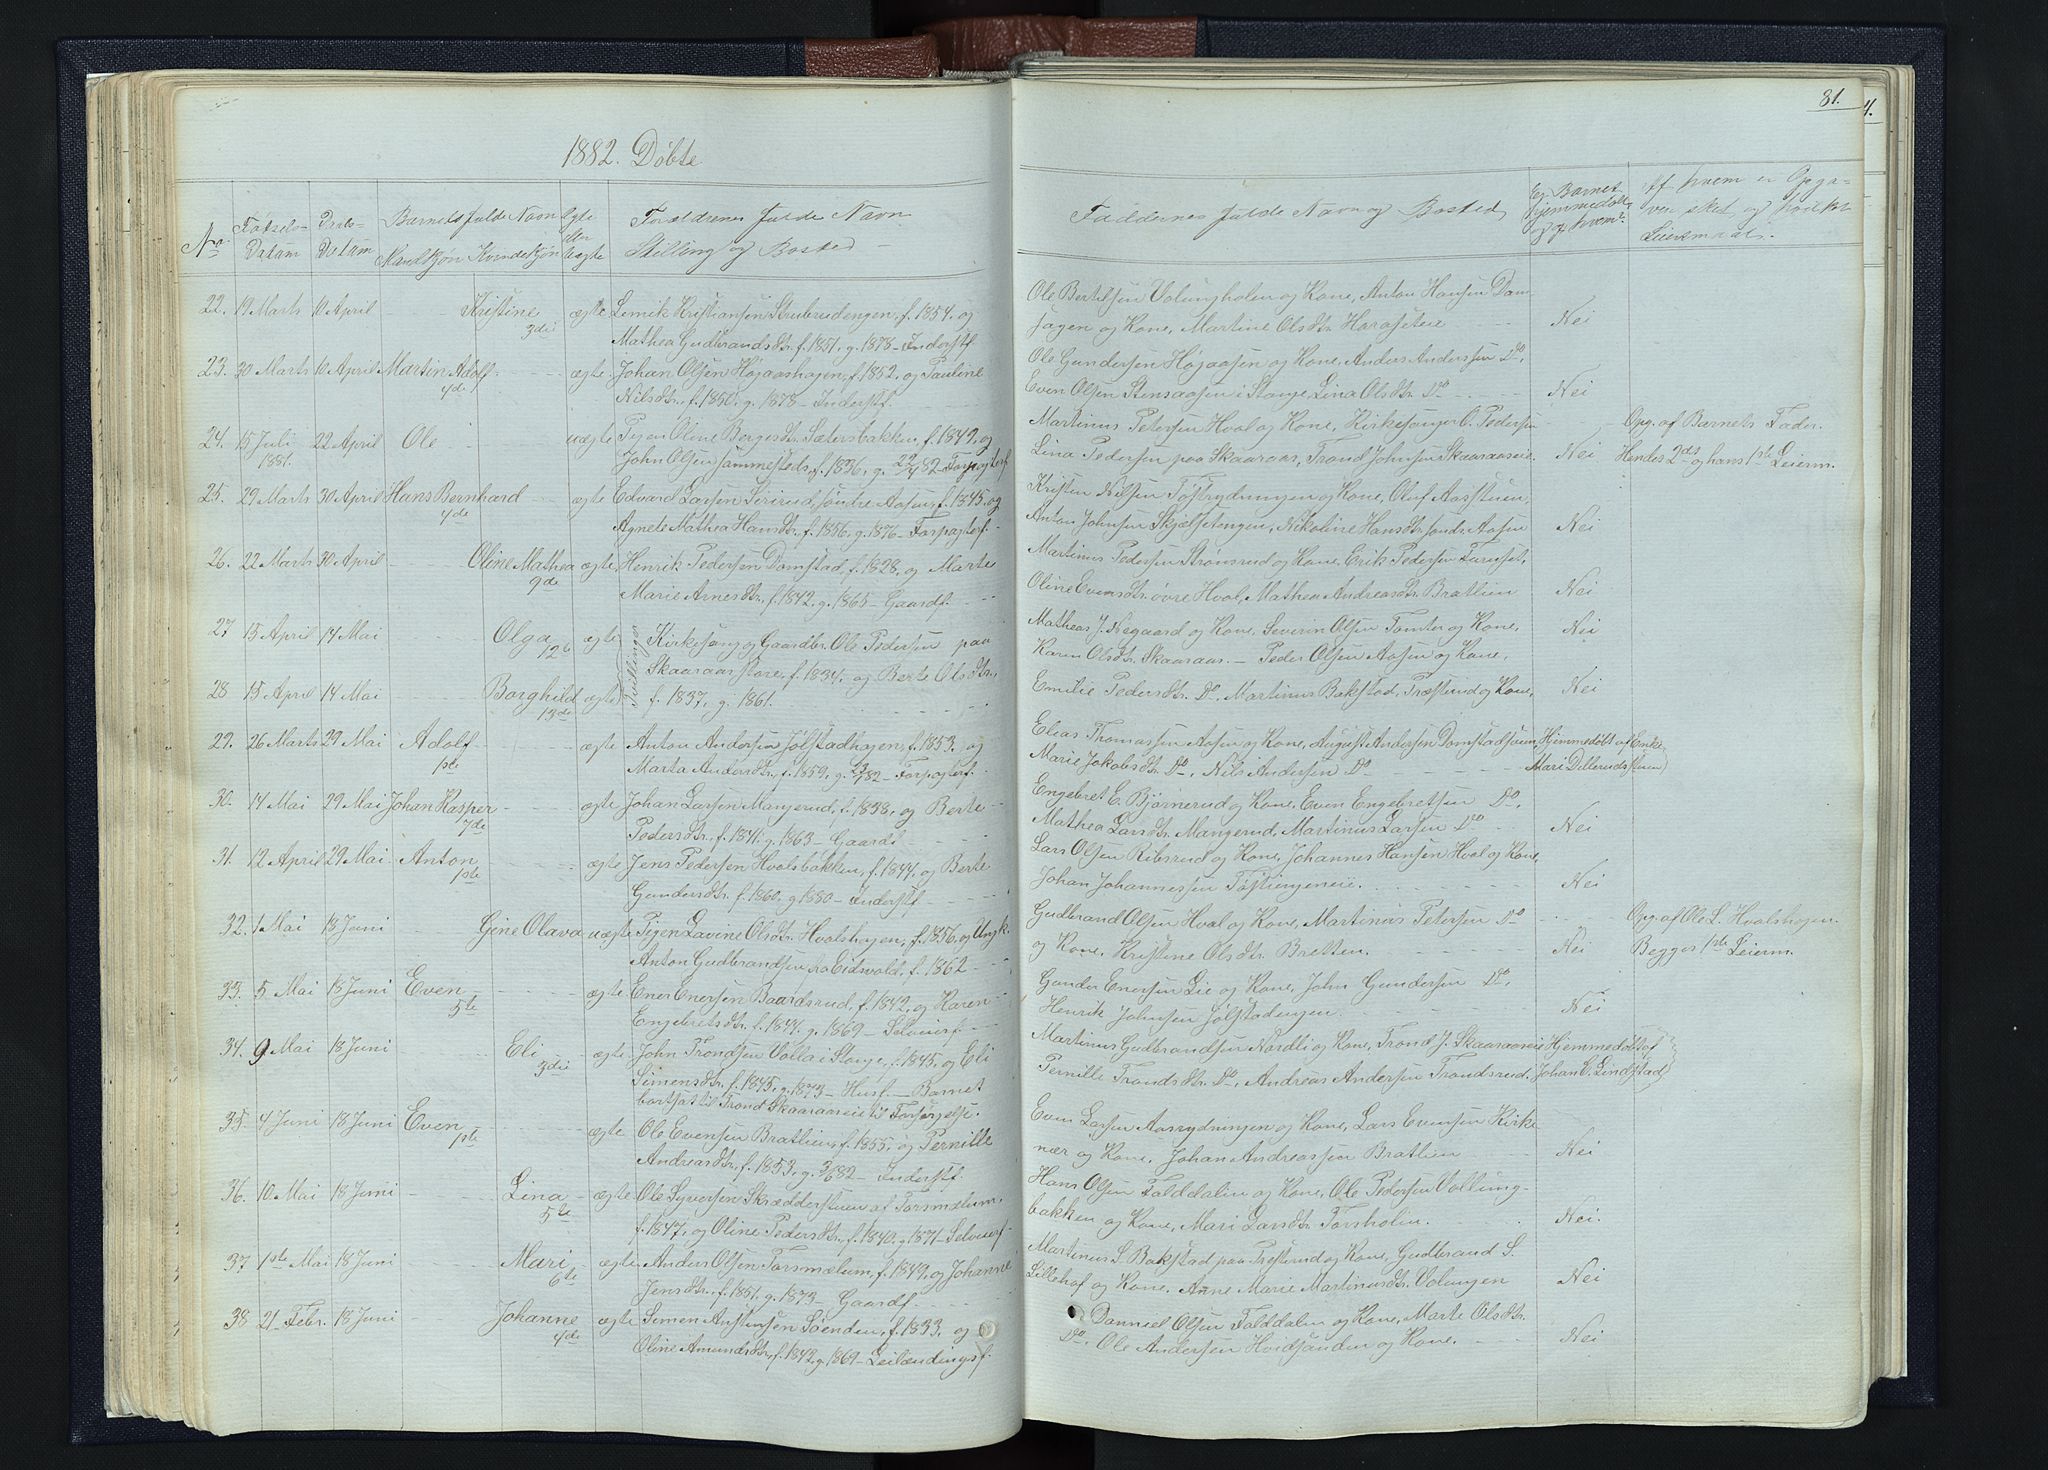 1882. Døbte
No. Fødsels-Datum Daabs-Datum Barnets fulde Navn Mandkjøn Kvindekjøn Ægte eller uægte Forældrenes fulde Navn Stilling og Bosted
22. 19 Marts 10 April Kristine 3die ægte Lemik Kristiansen Strubrudengen, f. 1854, og
Mathea Gudbrandsdtr. f. 1851, g. 1878 - Inderstf.
23. 30 Marts 10 April Martin Adolf 4de ægte Johan Olsen Højaashagen, f. 1852, og Pauline
Nilsdtr., f. 1850, g. 1878 - Inderstf.
24. 15 Juli 1881. 22 April Ole uægte Pigen Oline Bergesdtr. Sætersbakken, f. 1849, og
John Olsen sammesteds, f. 1836, g. 22/4 82 - Forpagterf.
25. 29 Marts 30 April Hans Bernhard 4de ægte Edvard Larsen Sirirud, søndre Aasen, f. 1845, og
Agnete Mathea Hansdtr. f. 1856, g. 1876 - Forpagterf.
26. 22 Marts 30 April Oline Mathea 9de ægte Henrik Pedersen Domstad, f. 1828, og Marte
Marie Arnesdtr., f. 1842, g. 1865 - Gaardf.
27 15 April 14 Mai Olga 12te ægte Tvillinger Kirkesang. og Gaardbr. Ole Pedersen paa
Skaaraas store, f. 1834, og Berte Olsdtr.,
28 15 April 14 Mai Borghild 13de ægte f. 1837, g. 1861.
29. 26 Marts 29 Mai Adolf 1ste ægte Anton Andersen Jølstadhagen, f. 1853, og
Marta Andersdtr., f. 1859, g. 82 - Forpagterf.
30. 14 Mai 29 Mai Johan Kasper 7de ægte Johan Larsen Mangerud, f. 1838, og Berte
Pedersdtr., f. 1841, g. 1863 - Gaardf.
31. 12 April 29 Mai Anton 1ste ægte Jens Pedersen Hvalsbakken, f. 1844, og Berte
Gundersdtr. f. 1860, g. 1880 - Inderstf.
32. 1 Mai 18 Juni Gine Olava uægte Pigen Lavine Olsdtr. Hvalshagen, f. 1856, og Ungk.
Anton Gudbrandsen fra Eidsvold, f. 1862
33. 5 Mai 18 Juni Even 5te ægte Ener Enersen Baardsrud, f. 1842, og Karen
Engebretsdtr. f. 1844, g. 1869 - Selveierf.
34. 9 Mai 18 Juni Eli 3die ægte John Trondsen Volla i Stange, f. 1845, og Eli
Simensdtr. f. 1845, g. 1873 - Husf. - Barnet
bortsat til Trond Skaaraaseie til Forsørgelse.
35. 4 Juni 18 Juni Even 1ste ægte Ole Evensen Bratlien, f. 1855, og Pernille
Andreasdtr., f. 1853, g. 3/82 - Inderstf.
36. 10 Mai 18 Juni Lina 5te ægte Ole Syversen Skræddersteen af Forsmælum,
f. 1847, og Oline Pedersdtr., f. 1840, g. 1871 - Selveierf.
37 1ste Mai 18 Juni Mari 6te ægte Anders Olsen Forsmælum, f. 1849, og Johanne
Jensdtr., f. 1851, g. 1873 - Gaardf.
38 21 Febr. 18 Juni Johanne 4de ægte Simen Austensen Søenden, f. 1833, og
Oline Amundsdtr., f. 1842, g. 1869 - Leilændingsf.
81.
Faddernes fulde Navn og Bosted Er Barnet hjemmedøbt og af hvem? Af hvem er Opgaven sket og hvilket Leiermaal.
Ole Bertelsen Volungholen og Kone, Anton Hansen Dam-
sagen og Kone, Martine Olsdtr. Haraseteie Nei
Ole Gundersen Højaasen og Kone, Anders Anderssen Do,
Even Olsen Stensaasen i Stange, Lina Olsdtr. Do Nei
Martinus Petersen Hval og Kone, Kirkesanger O. Pedersen Opg. af Barnets Fader.
Lina Pedersen paa Skaaraas, Trond Johnsen Skaaraaseie Nei Hendes 2det og hans 1ste Leierm.
Kristen Nilsen Tøstrydningen og Kone, Oluf Aasstuen,
Anton Johnsen Skjælsetengen, Nikoline Hansdtr. søndre Aasen Nei
Martinus Pedersen Strønsrud og Kone, Erik Pedersen Furuset,
Oline Evensdtr. øvre Hval, Mathea Andreasdtr. Bratlien Nei
Matheas J. Negaard og Kone, Severin Olsen Tomter og Kone, Nei
Karen Olsdtr. Skaaraas. - Peder Olsen Aasen og Kone,
Emilie Pedersdtr. Do, Martinus Bakstad, Præsterud og Kone, Nei
Elias Thomassen Aasen og Kone, August Andersen Domstadsveen, Hjemmedøbt af Enke
Marie Jakobsdtr. Do, Nils Andersen Do Mari Dillerud
Engebret E. Bjørnerud og Kone, Even Engebretsen Do,
Mathea Larsdtr. Mangerud, Martinus Larsen Do Nei
Lars Olsen Ribsrud og Kone, Johannes Hansen Hval og Kone,
Johan Johannessen Tøstingeneie. Nei
Gudbrand Olsen Hval og Kone, Martinus Petersen Do Opg. af Ole L. Hvalshagen.
og Kone, Kristine Olsdtr. Bretten. Nei Begges 1ste Leierm.
Gunder Enersen Lie og Kone, John Gundersen Do,
Henrik Johnsen Jølstadengen. Nei
Martinus Gudbrandsen Nordli og Kone, Trond J. Skaaraaseie Hjemmedøbt af
Pernille Trondsdtr. Do, Andreas Andersen Trondsrud. Johan C. Lindstad
Even Larsen Aasrydningen og Kone, Lars Evensen Kirke-
nær og Kone, Johan Andreassen Bratlien Nei
Hans Olsen Falddalen og Kone, Ole Pedersen Vollung-
bakken og Kone, Mari Larsdtr. Forsholen. Nei.
Martinus S. Bakstad paa Præsterud og Kone, Gudbrand S.
Lillehof og Kone, Anne Marie Martinusdtr. Volungen Nei
Danniel Olsen Falddalen og Kone, Marte Olsdtr.
Do, Ole Andersen Hvidsanden og Kone. Nei